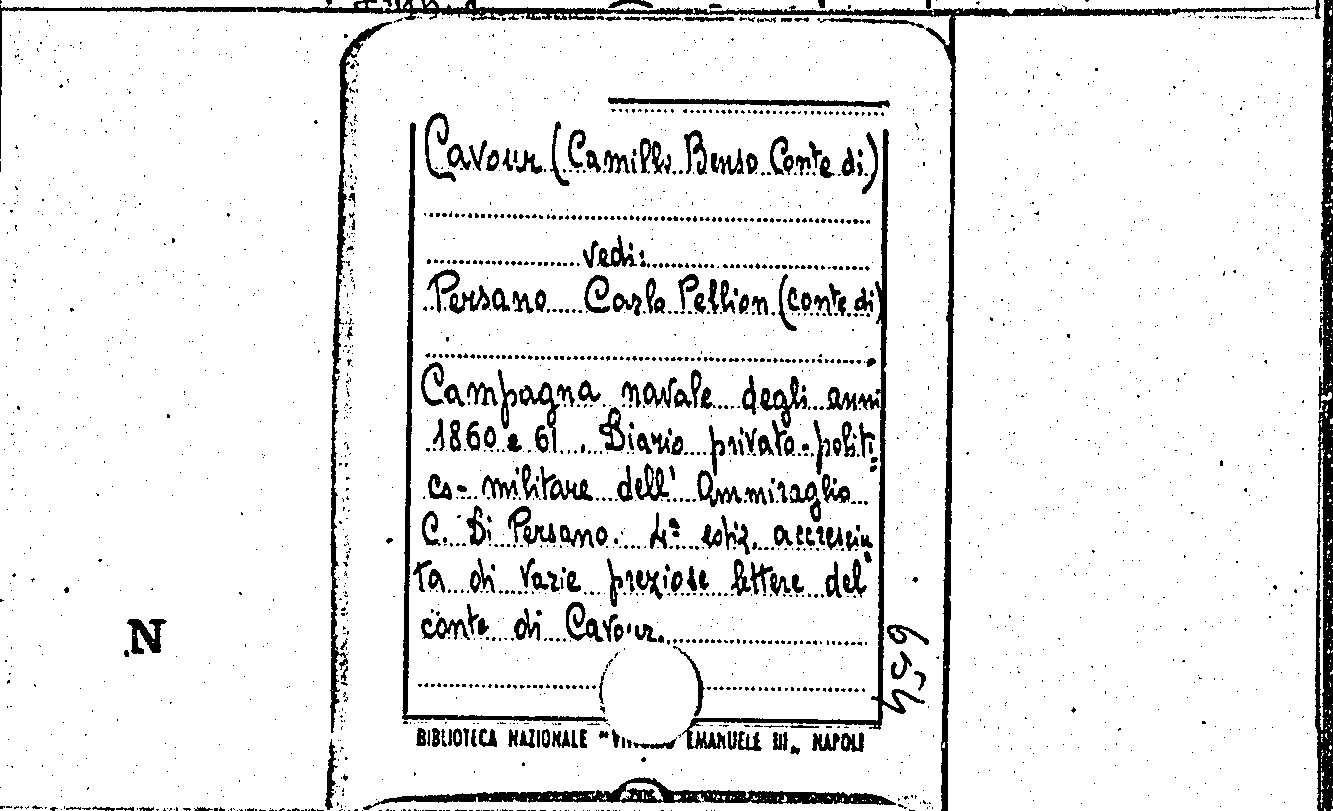 Cavour (Camillo Benso Conte di)
vedi:
Persano Carlo Pellion (conte di)
Campagna navale degli anni
1860 e 61. Diario privato-politi=
co-militare dell' Ammiraglio
C. Di Persano. 4ª ediz. accresciu
ta di varie preziose lettere del
conte di Cavour.
659
N
BIBLIOTECA NAZIONALE "VITTORIO EMANUELE III„ NAPOLI